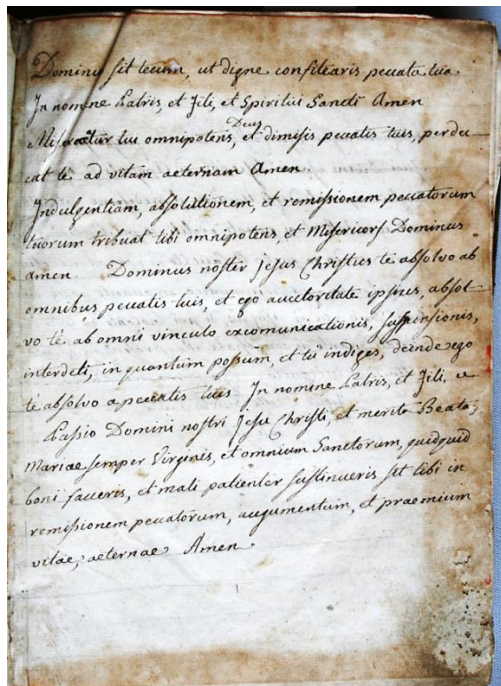 Dominus sit tecum, ut digne confitearis peccata tua
In nomine Patris, et Filii, et Spiritus Sancti Amen
Misereatur tui omnipotens Deus, et dimissis peccatis tuis, perdu-
cat te ad vitam aeternam Amen
Indulgentiam, absolutionem, et remissionem peccatorum
tuorum tribuat tibi omnipotens, et Misericors Dominus
amen Dominus noster Jesus Christus te absolvo ab
omnibus peccatis tuis, et ego auctoritate ipsius, absol-
vo te ab omni vinculo excomunicationis, suspensionis,
interdeti, in quantum possum, et tu indiges, deinde ego
te absolvo a peccatis tuis In nomine Patris, et Filii, e
Passio Domini nostri Jesu Christi, et merito Beatae
Mariae semper Virginis, et omnium Sanctorum, quidquid
boni facceris, et mali patienter sustinueris sit tibi in
remissionem peccatorum, augumentum, et praemium
vitae, aeternae Amen